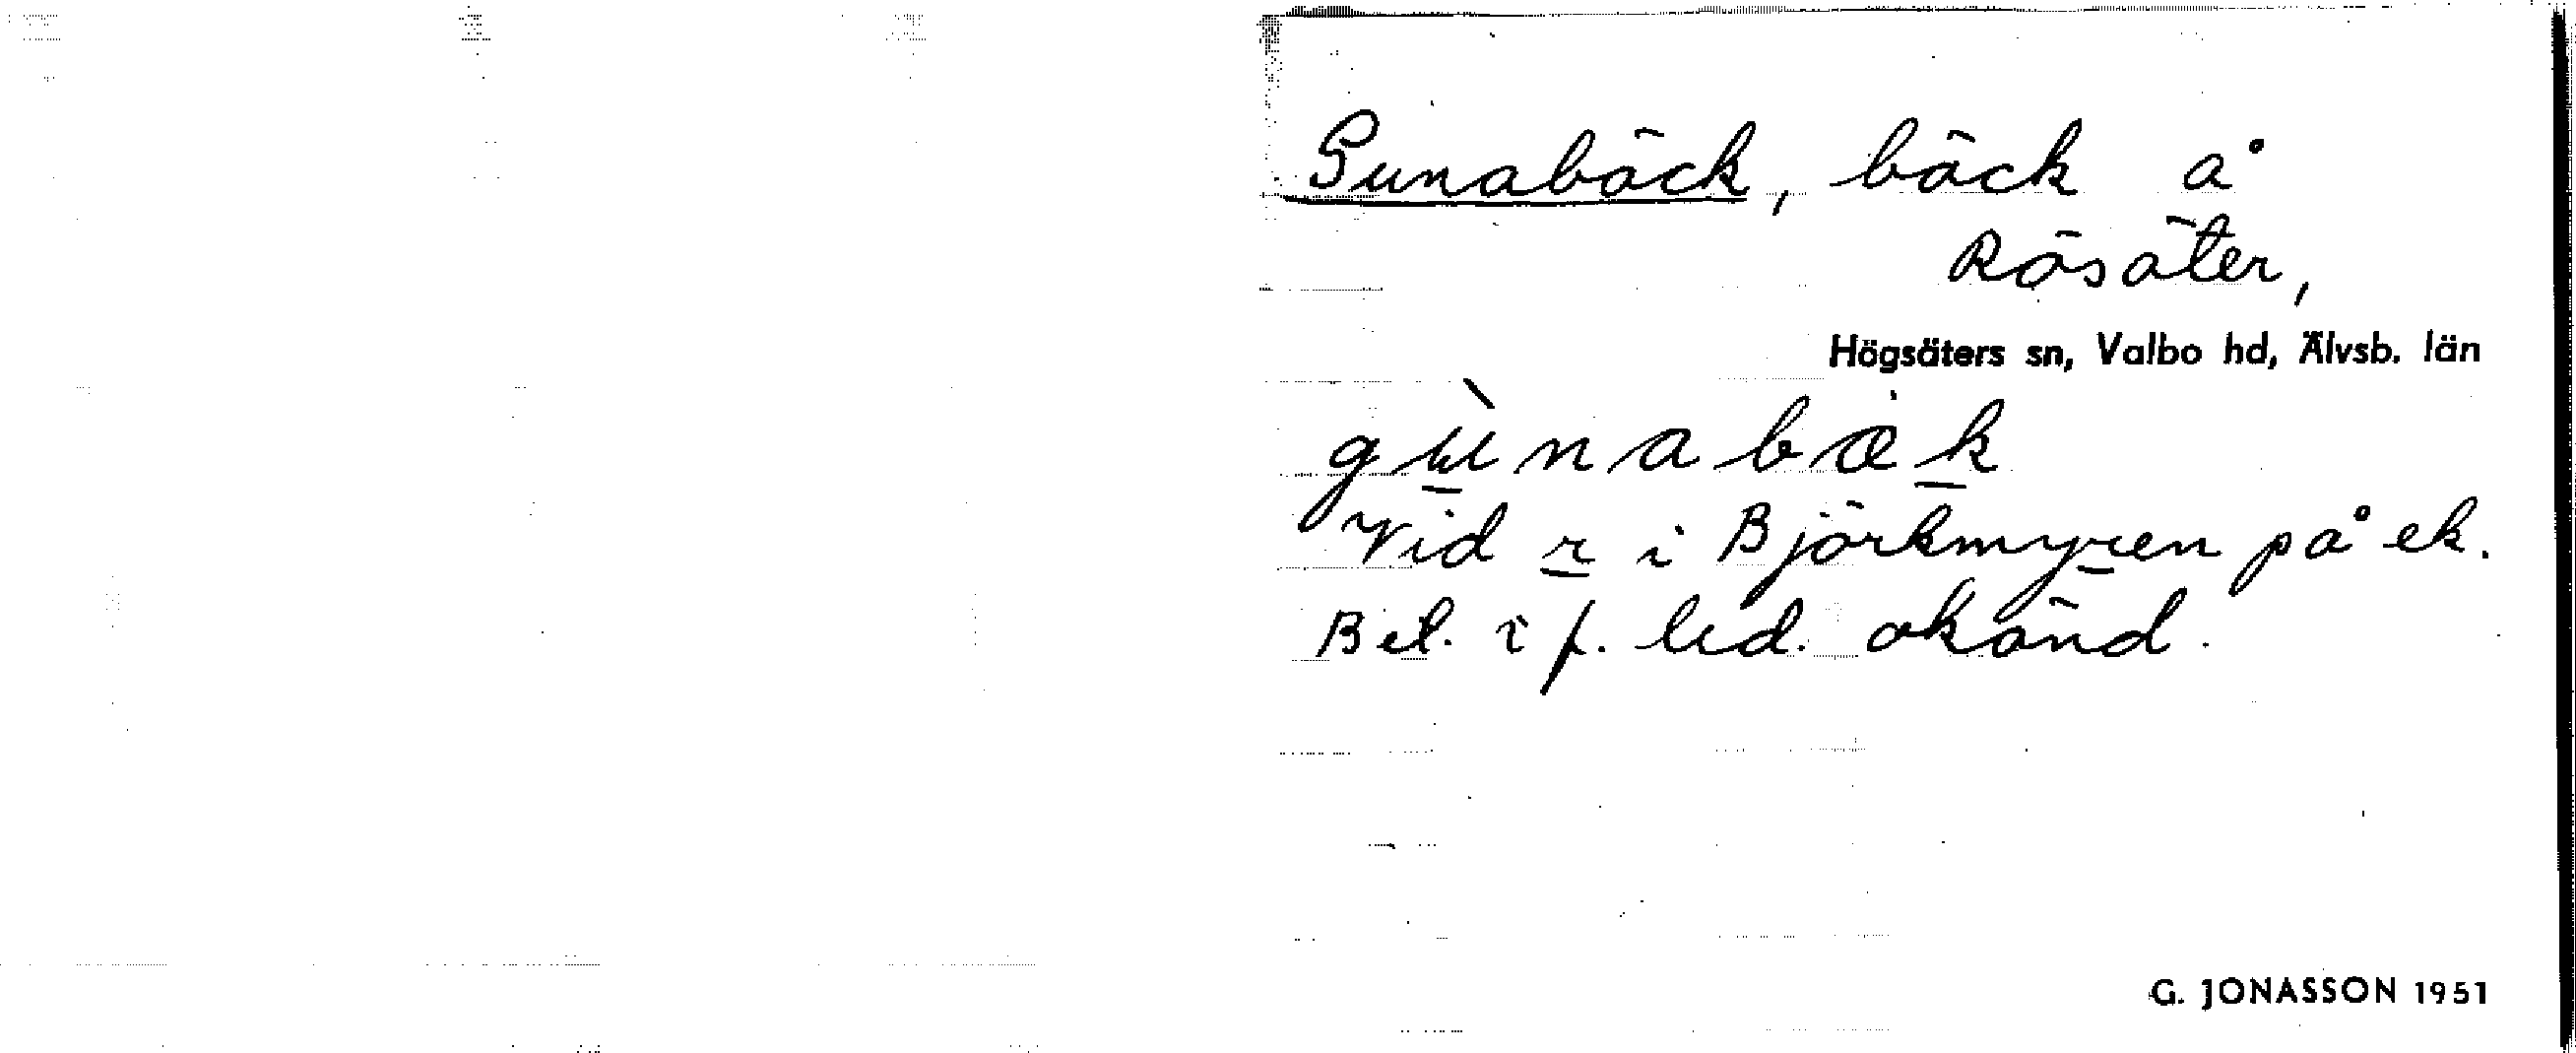 Gunabäck, bäck å
Rösäter,
Högsäters sn, Valbo hd, Älvsb. län
gùnabæk
Vid r i Björkmyren på ek.
Bet. i f. led. okänd.
G. JONASSON 1951